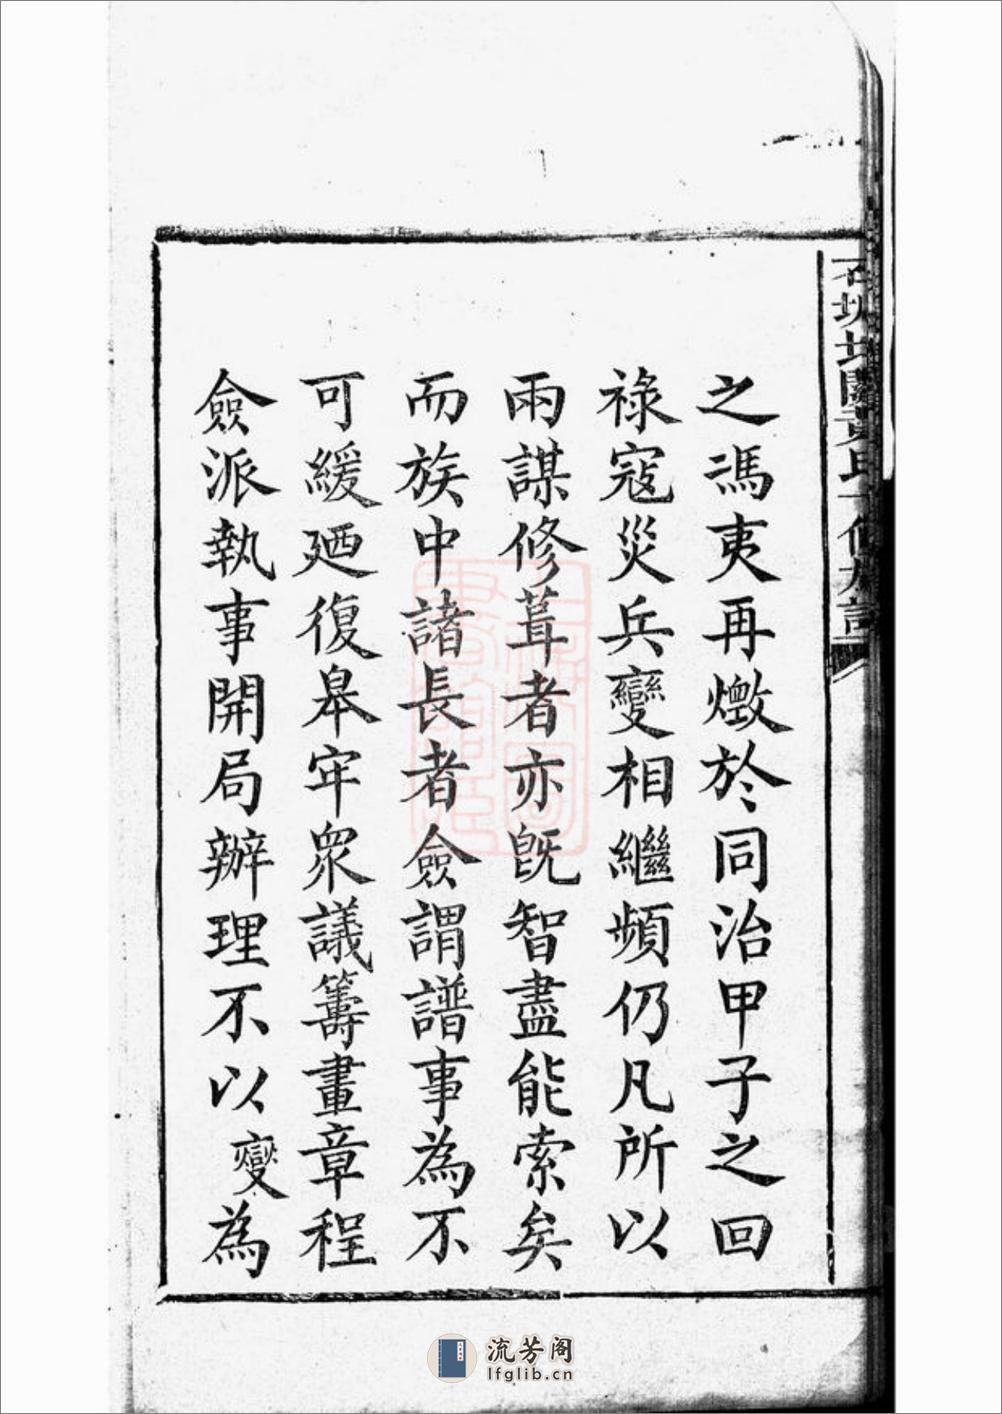 之馮夷再燬於同治甲子之回
祿寇災兵變相繼頻仍凡所以
兩謀修葺者亦旣智盡能索矣
而族中諸長者僉謂譜事為不
可緩廼復皋牢眾議籌畫章程
僉派執事開局辦理不以燮為
流芳阁
lfglib.cn